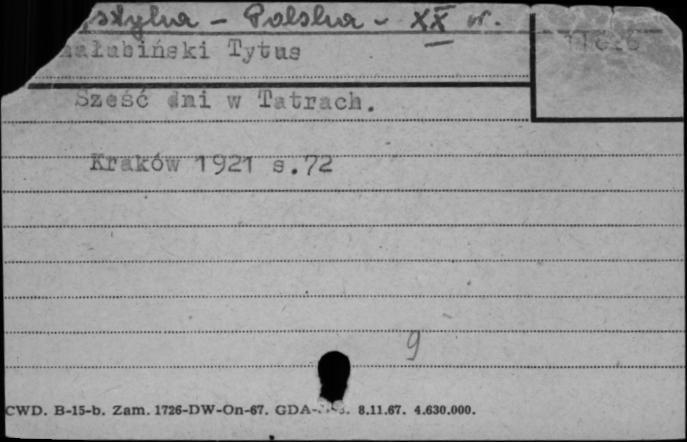 Polska - XX w.
ałubiński Tytus
Sześć dni w Tatrach.
Kraków 1921 s.72
9
CWD. B-15-b. Zam. 1726-DW-On-67. GDA- 8.11.67. 4.630.000.